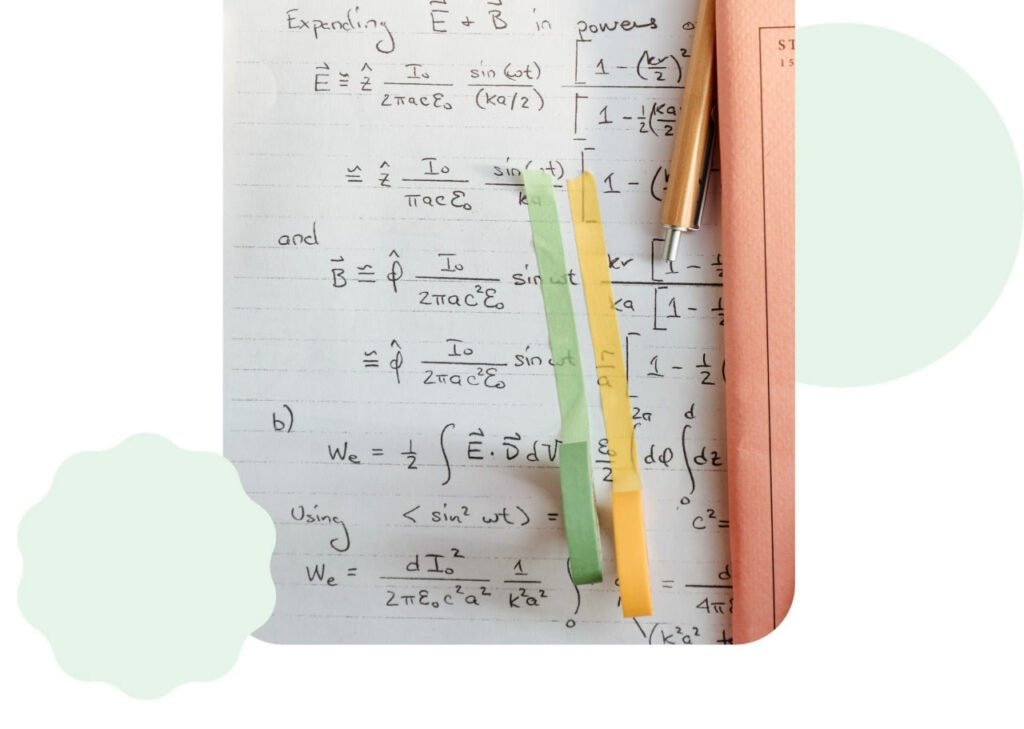 Expanding E⃗ + B⃗ in powers o
E⃗ ≅ ẑ I₀/(2πacε₀) sin(ωt)/(ka/2) [1 - (kr/2)²/[1 - ½(ka/2)
≅ ẑ I₀/(πacε₀) sin(ωt)/ka [1 - (
and
B⃗ ≅ φ̂ I₀/(2πac²ε₀) sin ωt kr/ka [1 - ½/[1 - ½
≅ φ̂ I₀/(2πac²ε₀) sin ωt r/a [1 - ½(
b)
Wₑ = ½ ∫ E⃗ · D⃗ dV ε₀/2 ∫ 2π dφ ∫₀ᵈ dz
Using < sin² ωt > = c² =
Wₑ = dI₀²/(2πε₀c²a²) 1/(k²a²) ∫₀ = d/4πε
(k²a²
ST
15